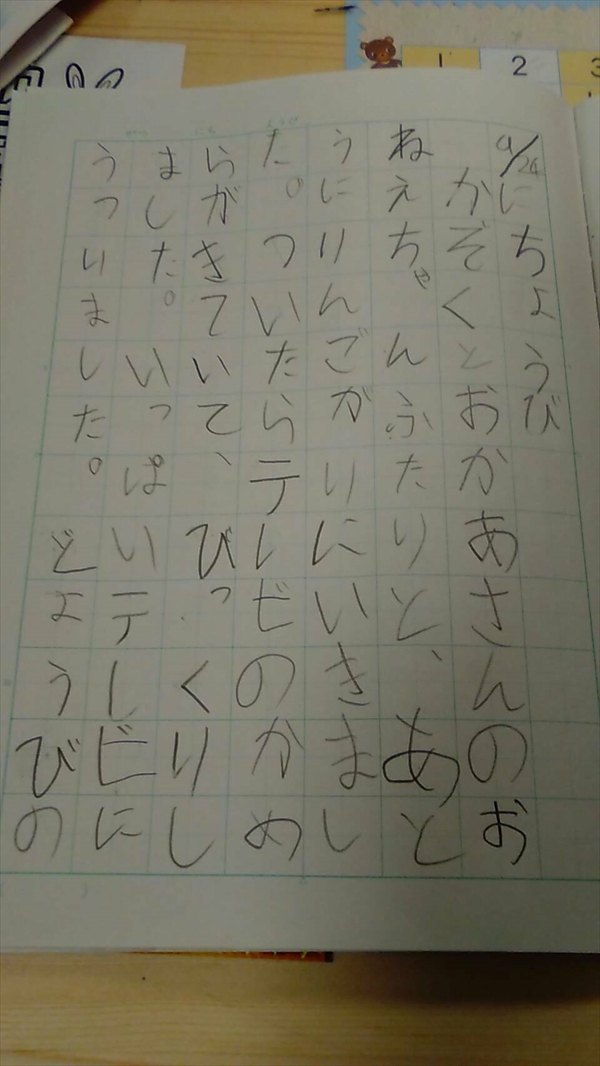 9/24 にちようび
かぞくとおかあさんのお
ねえちゃんふたりと、あと
うにりんごがりにいきまし
た。ついたらテレビのかめ
らがきていて、びっくりし
ました。いっぱいテレビに
うつりました。どようびの
1 2 3